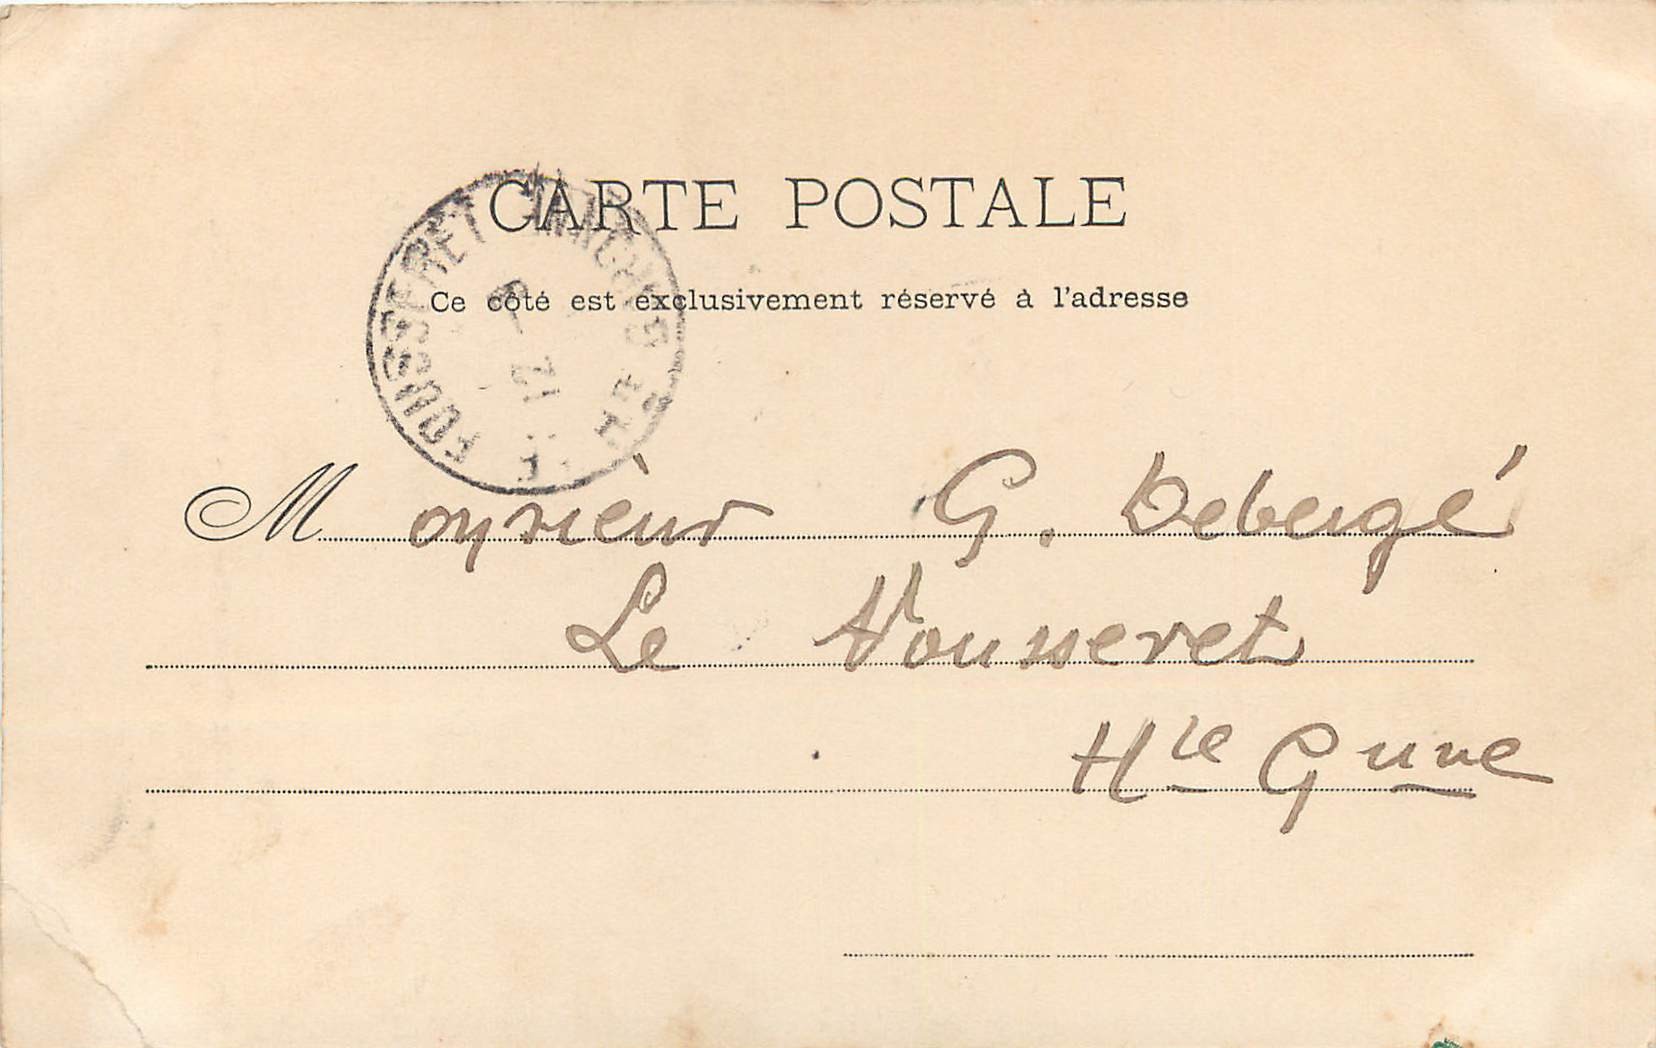 CARTE POSTALE
Ce côté est exclusivement réservé à l'adresse
FOUSSERET
Monsieur G. Debergé
Le Fousseret
Hte Gnne